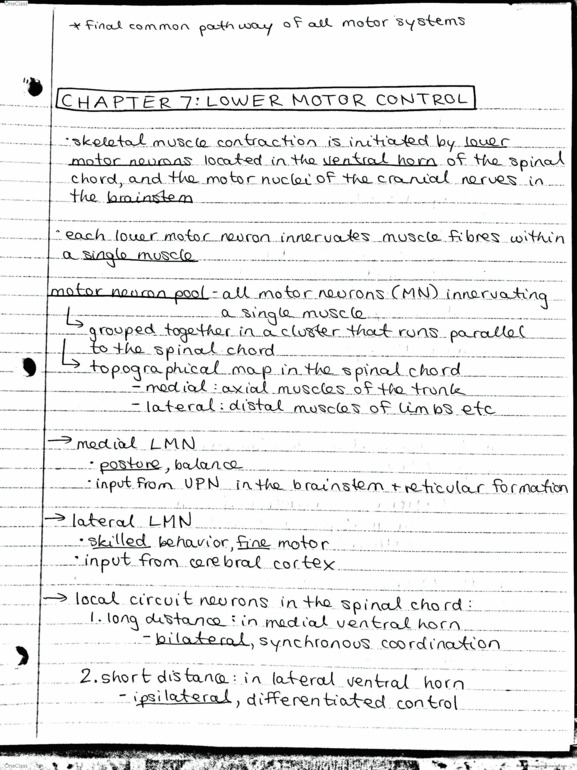 OneClass
* final common pathway of all motor systems
CHAPTER 7: LOWER MOTOR CONTROL
· skeletal muscle contraction is initiated by lower
motor neurons located in the ventral horn of the spinal
chord, and the motor nuclei of the cranial nerves in
the brainstem
· each lower motor neuron innervates muscle fibres within
a single muscle
motor neuron pool - all motor neurons (MN) innervating
a single muscle
↳ grouped together in a cluster that runs parallel
to the spinal chord
↳ topographical map in the spinal chord
- medial : axial muscles of the trunk
- lateral : distal muscles of limbs etc
→ medial LMN
· posture, balance
· input from UPN in the brainstem + reticular formation
→ lateral LMN
· skilled behavior, fine motor
· input from cerebral cortex
→ local circuit neurons in the spinal chord :
1. long distance : in medial ventral horn
- bilateral, synchronous coordination
2. short distance : in lateral ventral horn
- ipsilateral, differentiated control
OneClass